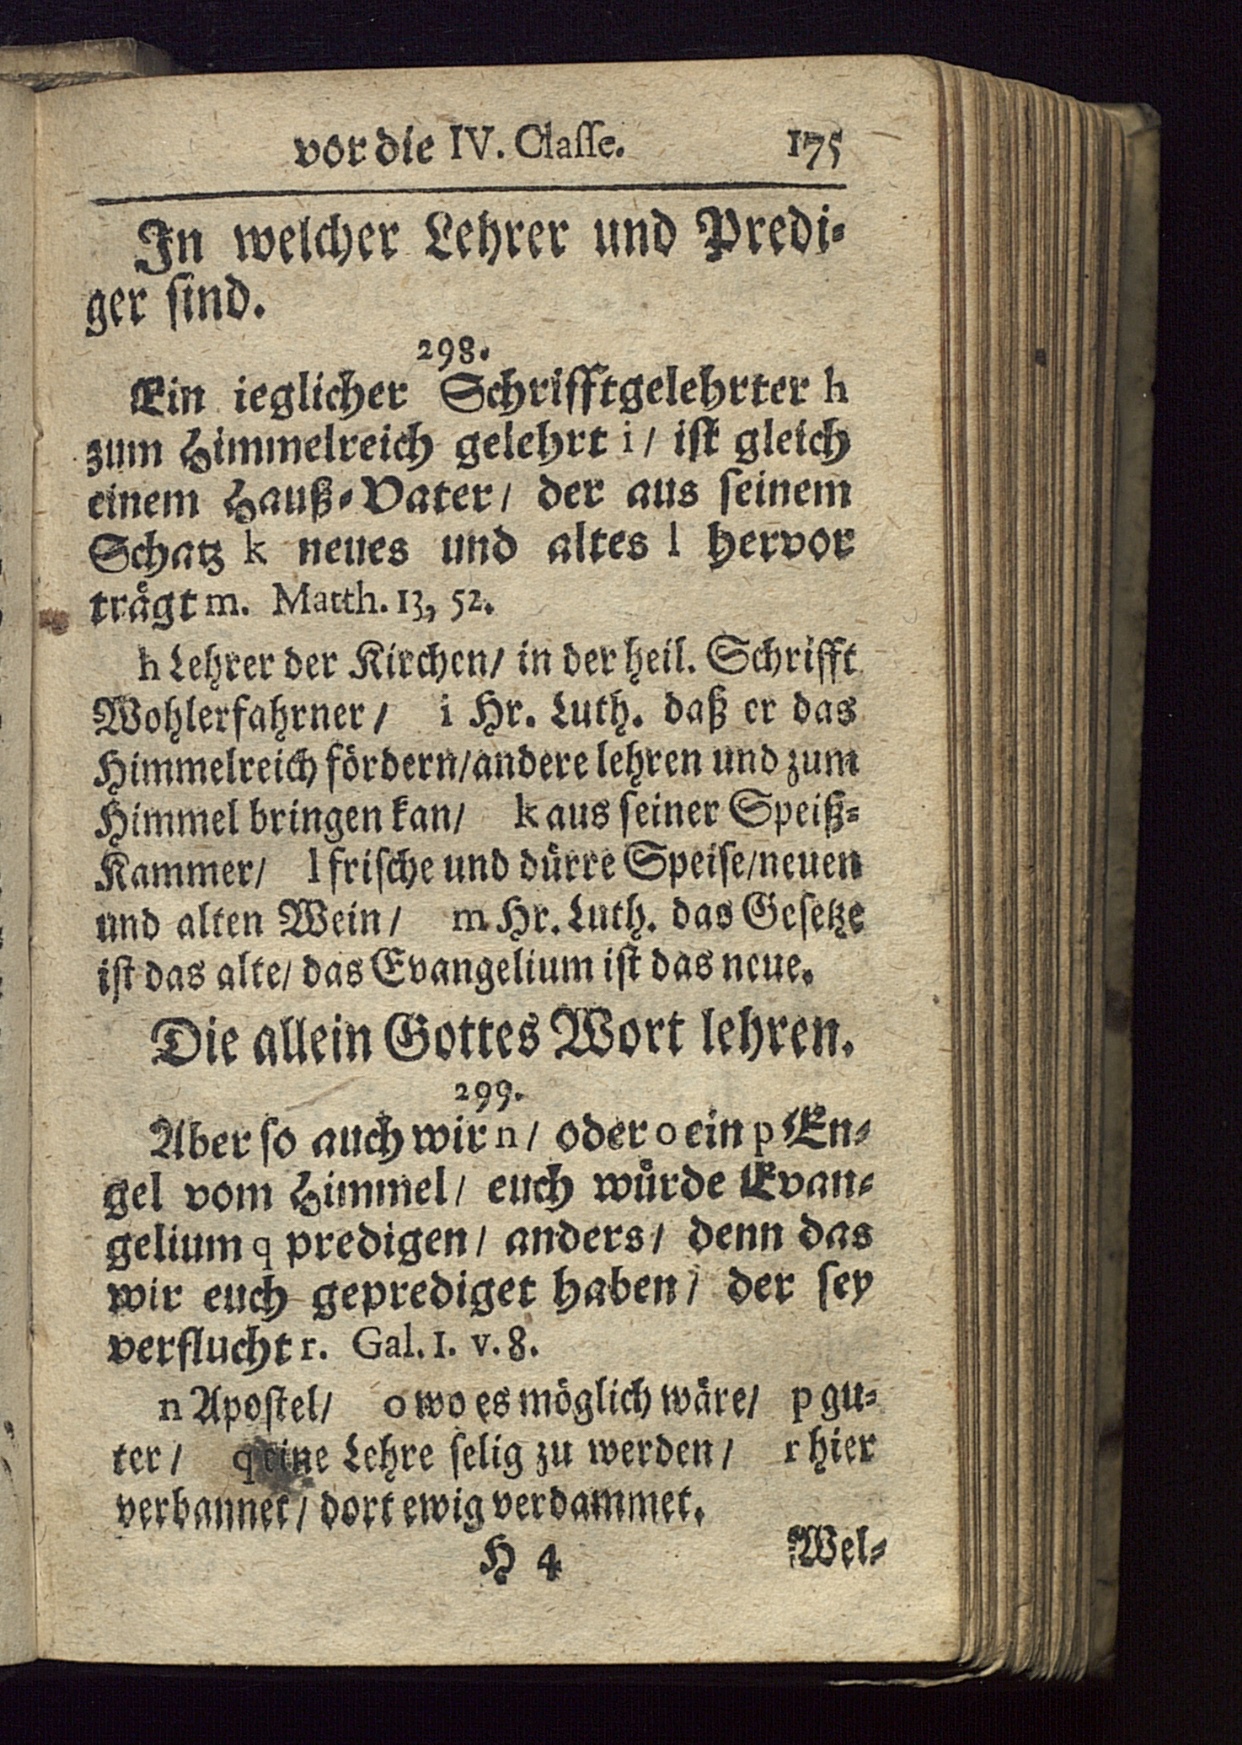 vor die IV. Classe. 175
In welcher Lehrer und Predi-
ger sind.
298.
Ein ieglicher Schrifftgelehrter h
zum Himmelreich gelehrt i / ist gleich
einem Hauß-Vater / der aus seinem
Schatz k neues und altes l hervor
trägt m. Matth. 13, 52.
h Lehrer der Kirchen / in der heil. Schrifft
Wohlerfahrner / i Hr. Luth. daß er das
Himmelreich fördern / andere lehren und zum
Himmel bringen kan / k aus seiner Speiß-
Kammer / l frische und dürre Speise / neuen
und alten Wein / m Hr. Luth. das Gesetze
ist das alte / das Evangelium ist das neue.
Die allein Gottes Wort lehren.
299.
Aber so auch wir n / oder o ein p En-
gel vom Himmel / euch würde Evan-
gelium q predigen / anders / denn das
wir euch geprediget haben / der sey
verflucht r. Gal. 1. v. 8.
n Apostel / o wo es möglich wäre / p gu-
ter / q eine Lehre selig zu werden / r hier
verbannet / dort ewig verdammet.
H 4 Wel-